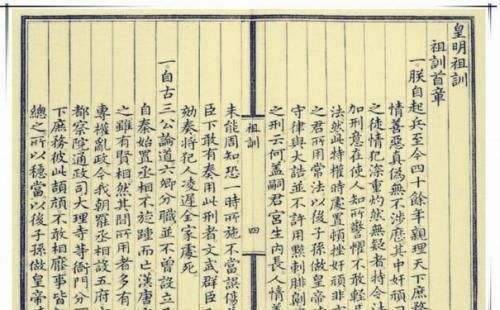 皇明祖訓
祖訓首章
一朕自起兵至今四十餘年親理天下庶務
情善惡真偽無不涉歷其中奸頑刁
之徒情犯深重灼然無疑者特令法
加刑意在使人知所警懼不敢輕易
法然此特權時處置頓挫奸頑非
之君所用常法以後子孫做皇帝時
守律與大誥並不許用黥刺腓劓
之刑云何蓋嗣君宮生內長人情善
祖訓
四
未能周知恐一時所施不當誤傷
臣下敢有奏用此刑者文武群臣
劾奏將犯人凌遲全家處死
一自古三公論道六卿分職並不曾設立
自秦始置丞相不旋踵而亡漢唐
之雖有賢相然其間所用者多有
專權亂政今我朝罷丞相設五府六
都察院通政司大理寺等衙門分
下庶務彼此頡頏不敢相壓事皆
總之所以穩當以後子孫做皇帝時